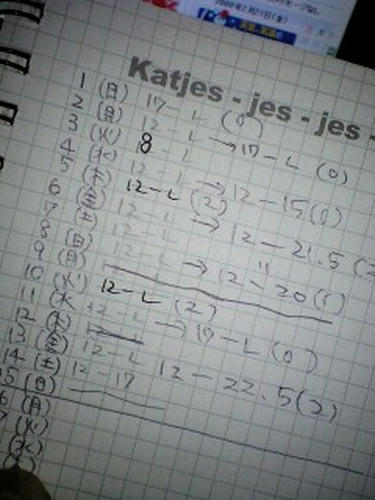 Katjes - jes - jes -
1 (日) 17 - L (0)
2 (月) 12 - L → 17 - L (0)
3 (火) 18 - L
4 (水) 12 - L → 12 - 15 (0)
5 (木) 12 - L (2)
6 (金) 12 - L → 12 - 21.5 (2
7 (土) 12 - L
8 (日) 12 - L → 12 - 20 (1)
9 (月)
10 (火) 12 - L (2)
11 (水) 12 - L → 17 - L (0)
12 (木) 12 - L
13 (金) 12 - L 12 - 22.5 (2)
14 (土) 12 - 17
15 (日)
6. (月)
7 (火)
(水)